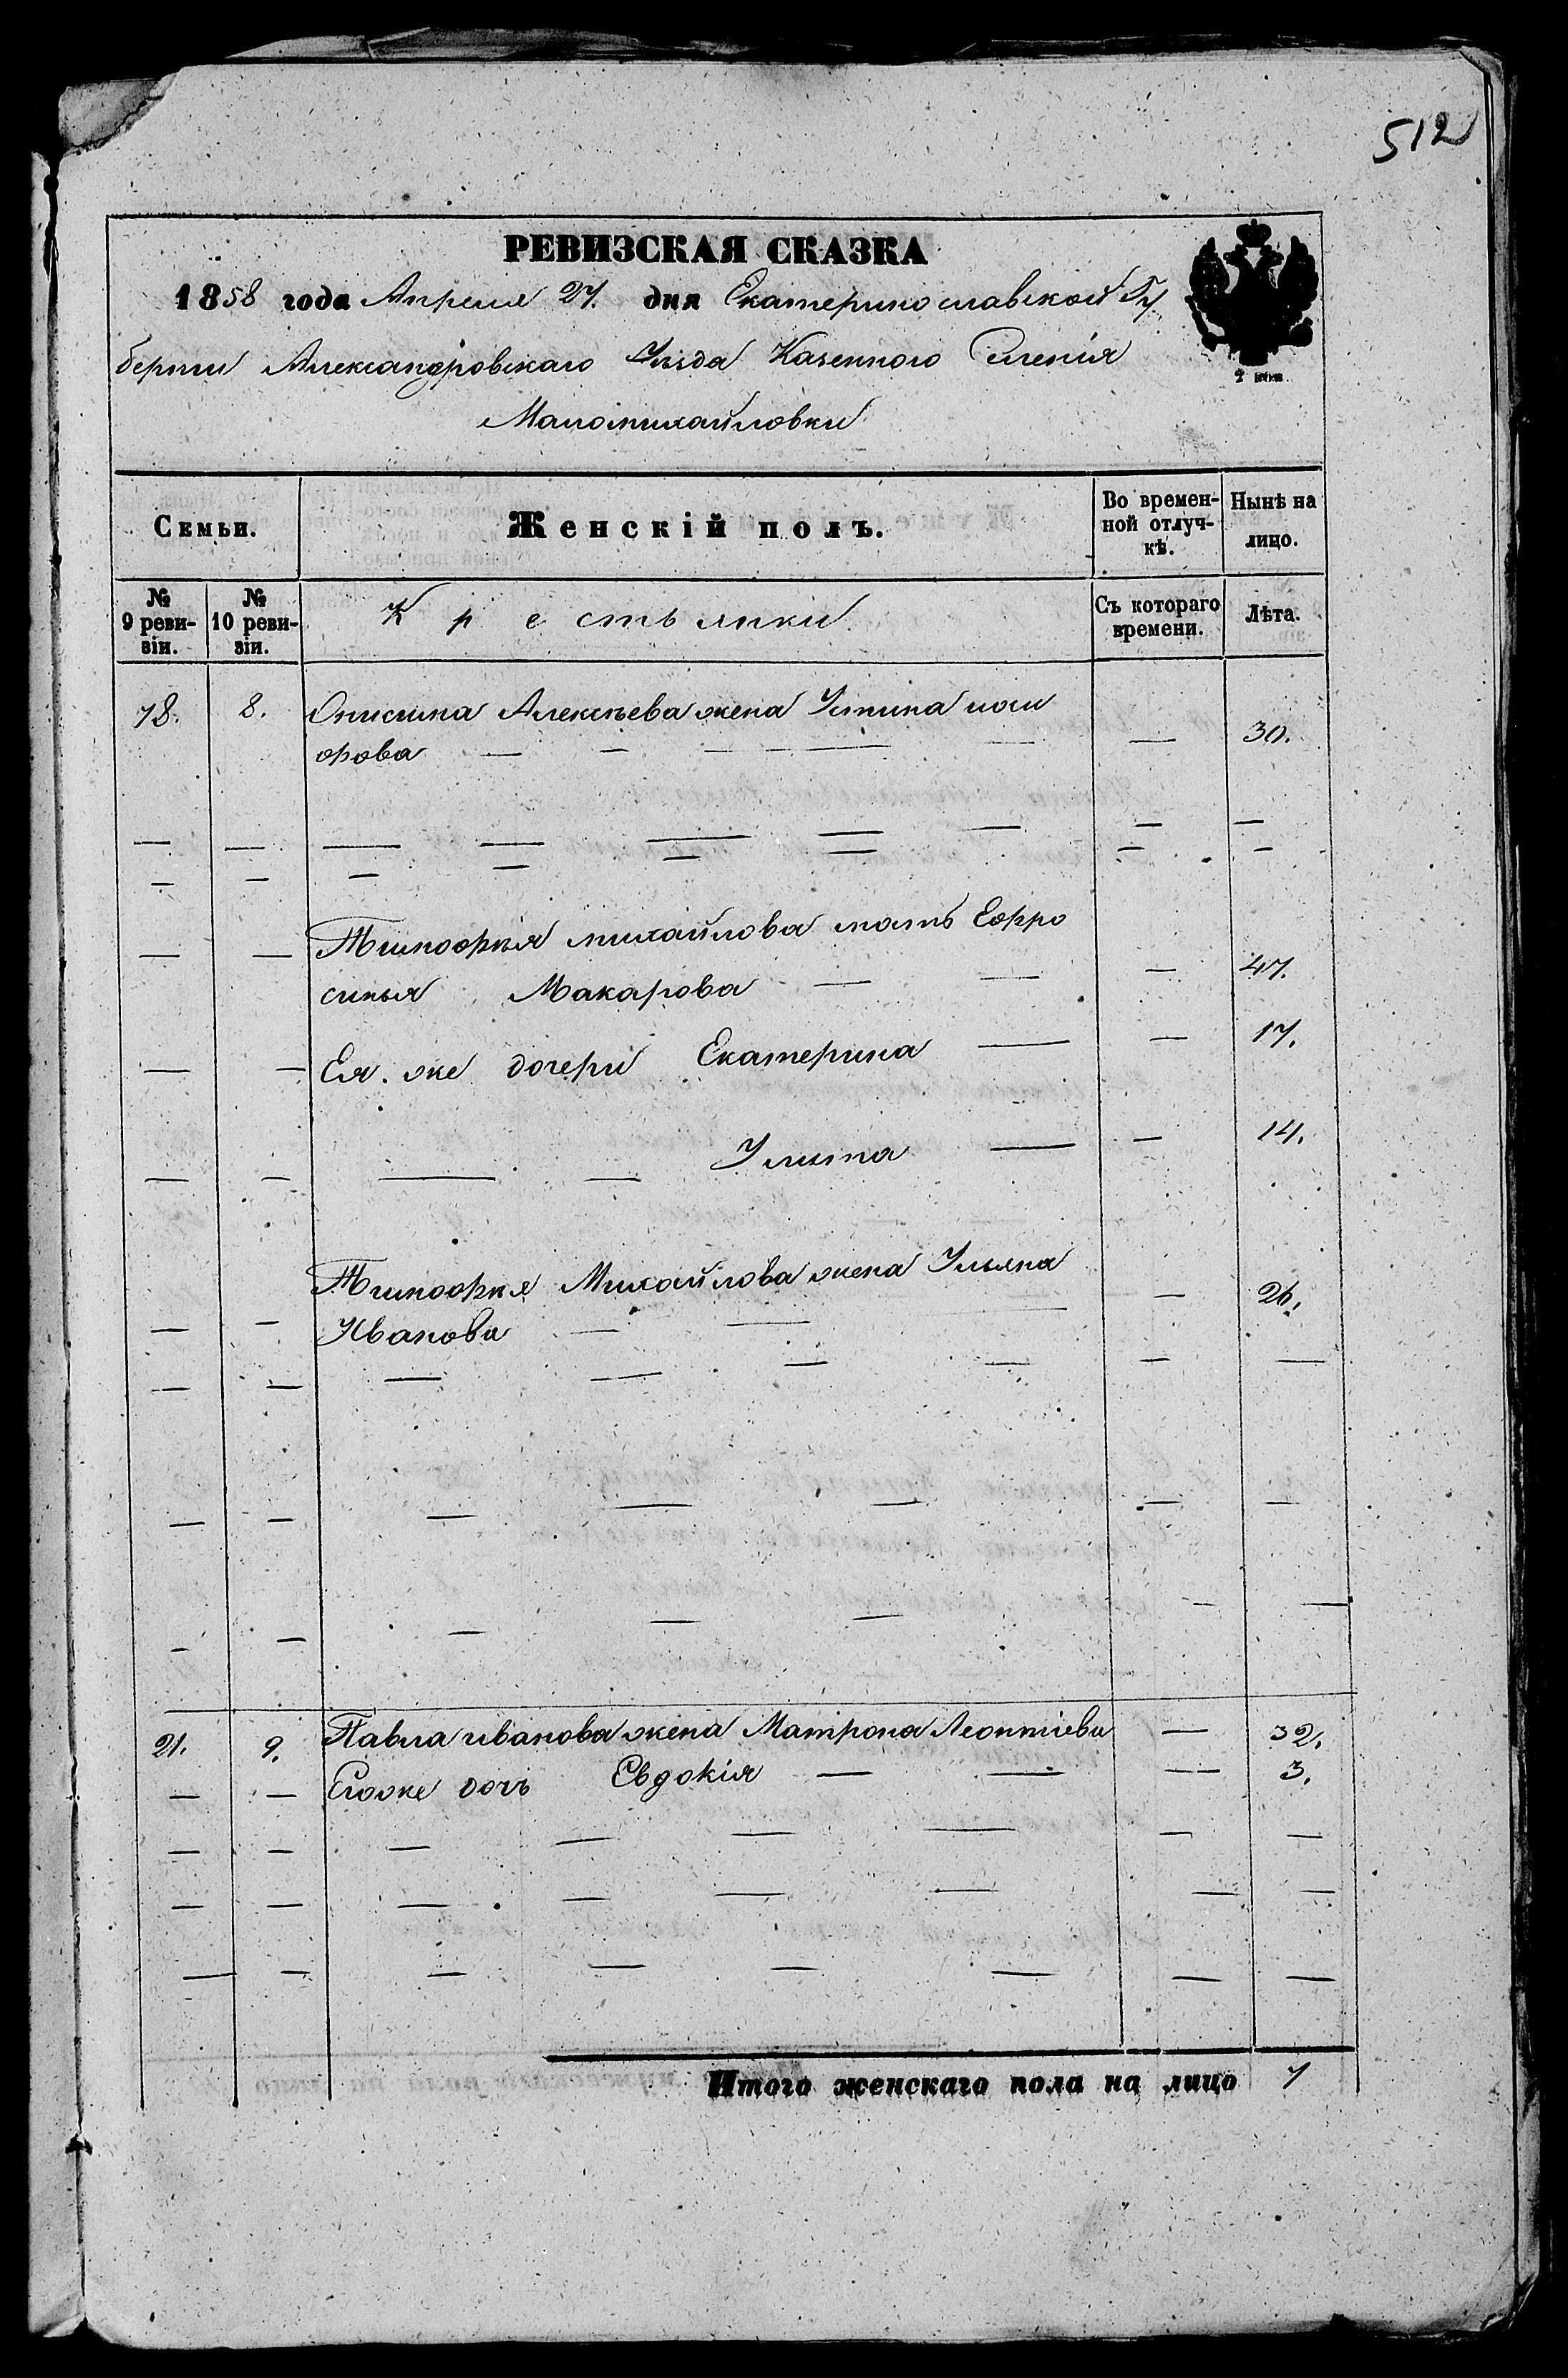 512
РЕВИЗСКАЯ СКАЗКА
1858 года Апреля 27. дня Екатеринославской Гу
берніи Александровскаго Уезда Казенного Селенія
Маломихайловки
2 коп.
Семьи. Женскій полъ. Во времен-ной отлуч-кѣ. Нынѣ на лицо.
№ 9 реви-зіи. № 10 реви-зіи. Крестьянки Съ котораго времени. Лѣта.
78. 8. Онисима Алексѣева жена Устина
фова — — — — — — — 30.
— — — — — — — — —
— — — — — — — —
Тимофѣя михайлова мать Ефро
— — синья Макарова — — — 47.
— — Ея же дочери Екатерина — — 17.
— — — — Улита — — 14.
Тимофѣя Михайлова жена Ульяна
— — Иванова — — — — 26.
— — — — — — — —
— — — — — — —
— — — — — — —
21. 9. Павла иванова жена Матрона Леонтіева — 32.
— — Егоже дочь Евдокія — — — 3.
— — — — — — — —
— — — — — — — —
— — — — — — — —
Итого женскаго пола на лицо 7